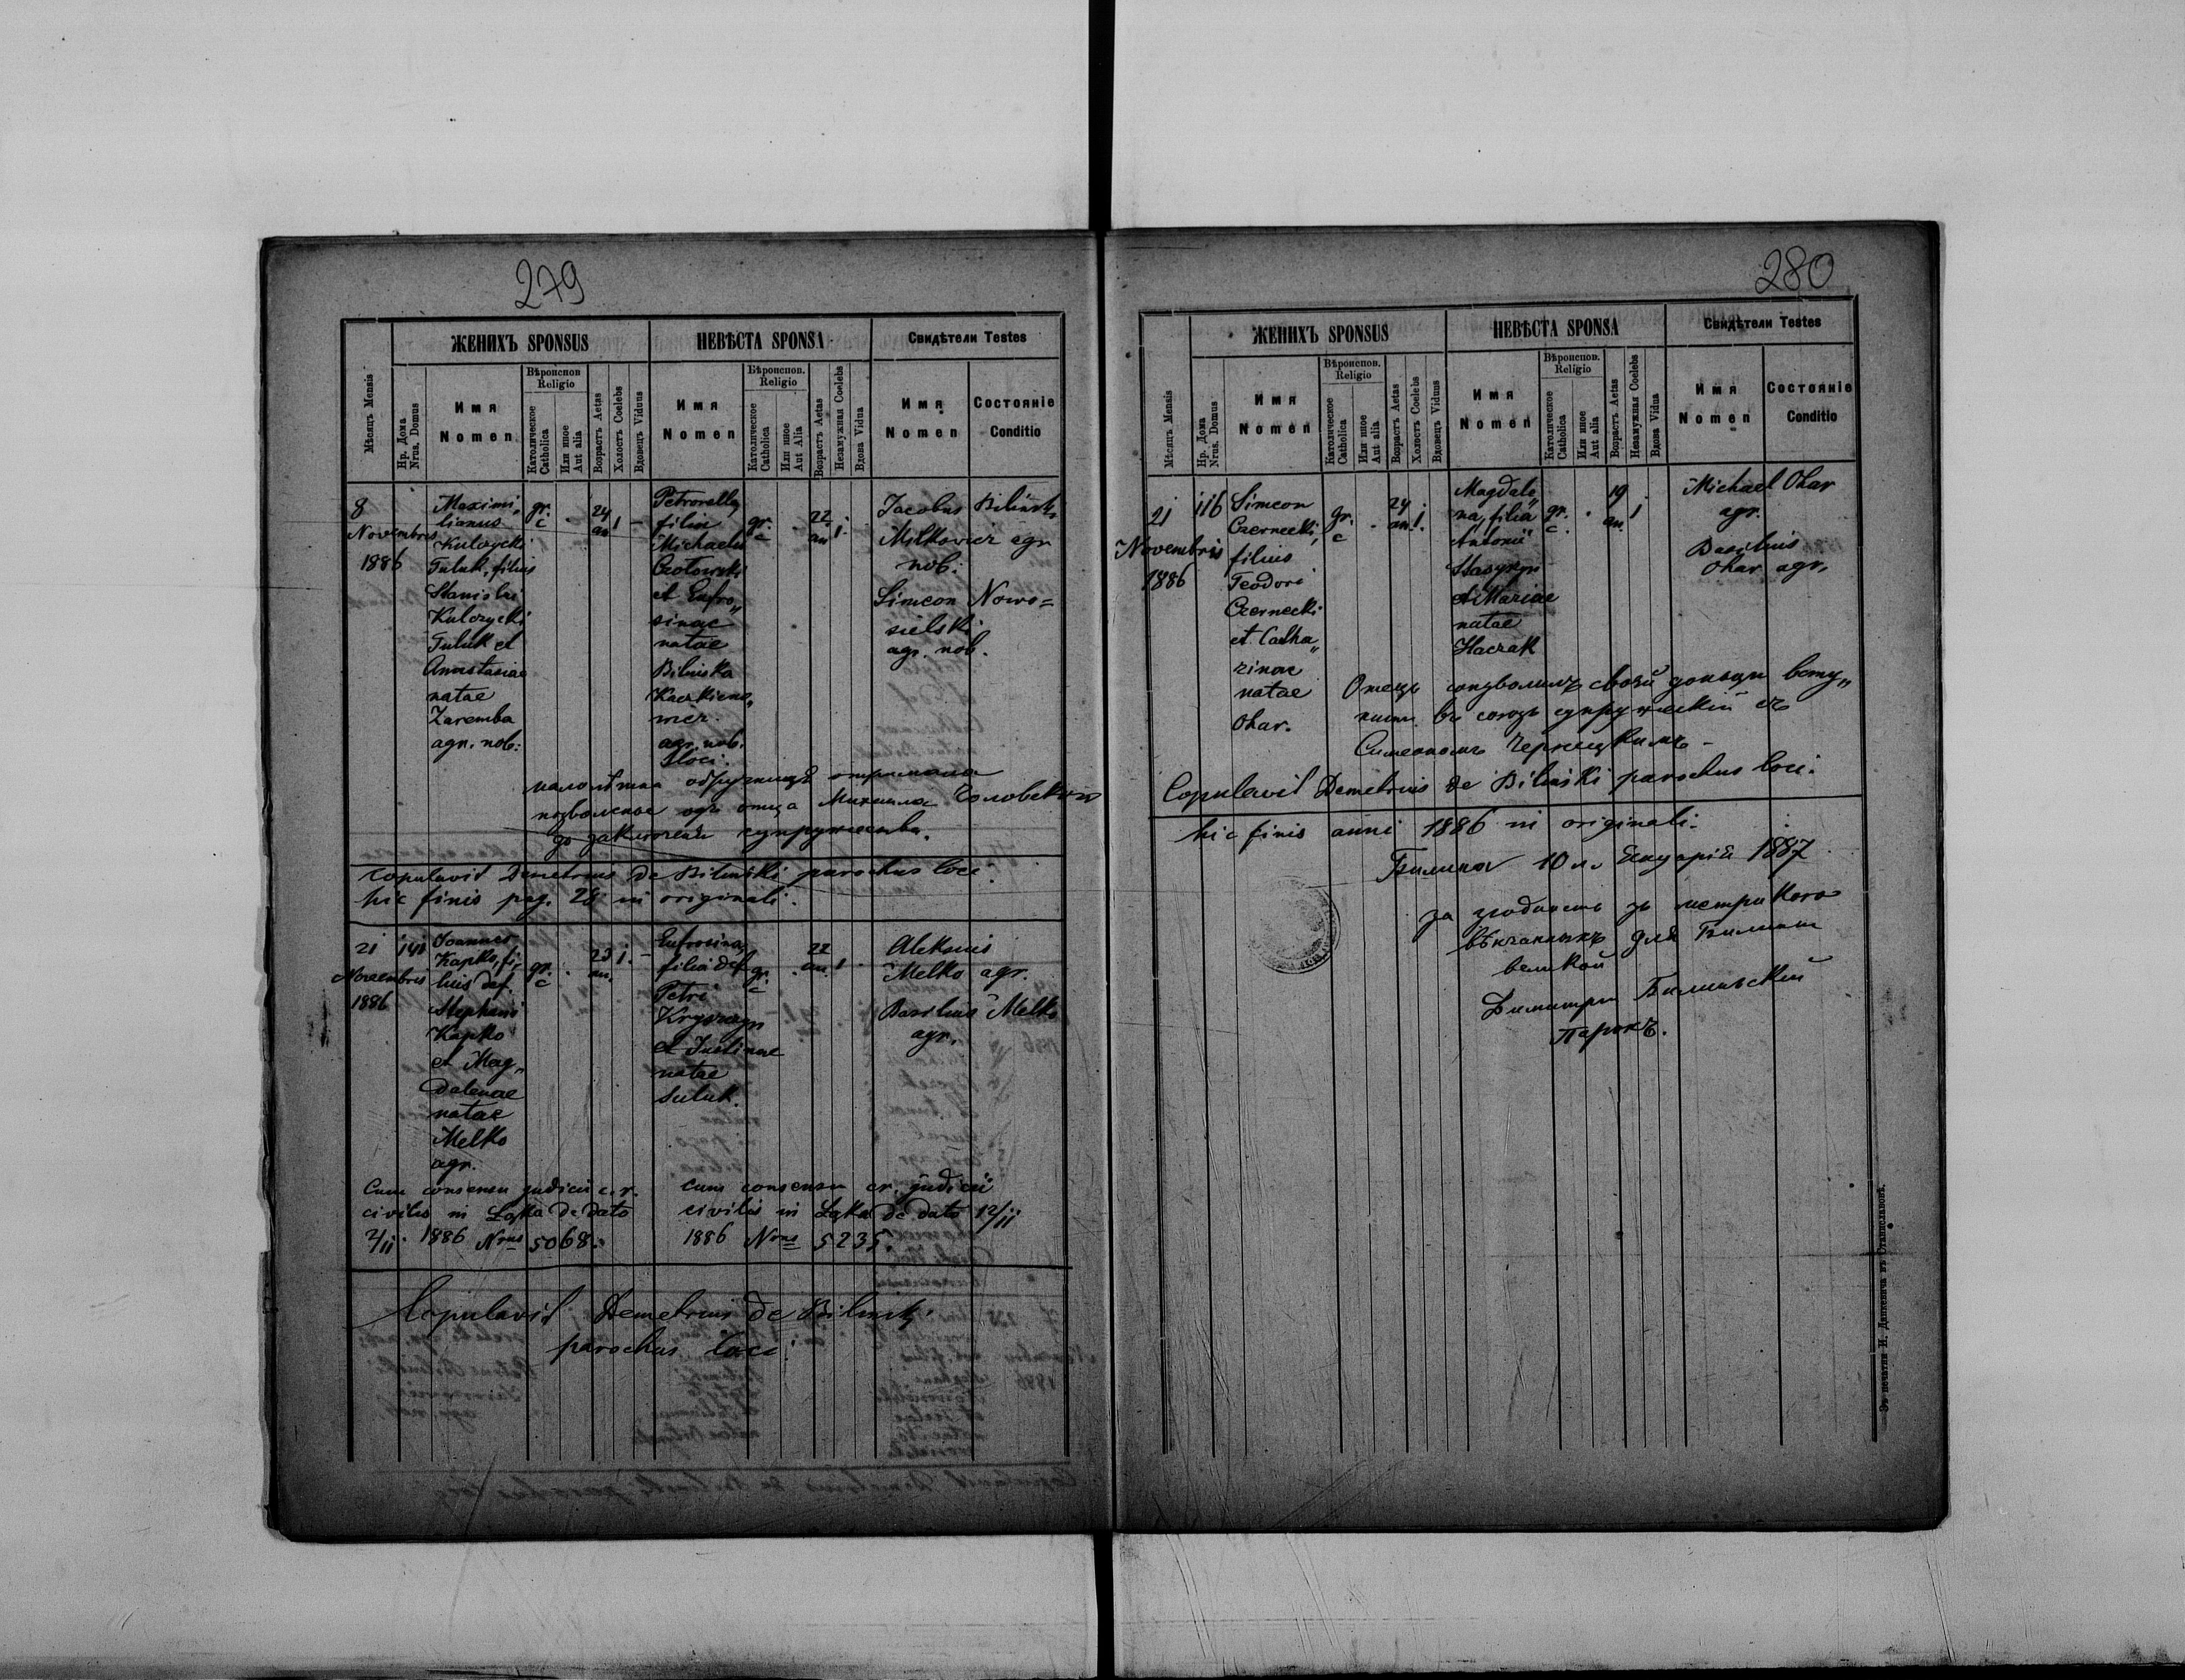 279
ЖЕНИХЪ SPONSUS
НЕВѢСТА SPONSA
Свидѣтели Testes
Мѣсяцъ Mensis
Нр. Дома
Nrus. Domus
Имя
Nomen
Вѣроиспов
Religio
Католическое
Catholica
Или иное
Aut alia
Возрастъ Aetas
Холостъ Coelebs
Вдовецъ Viduus
Имя
Nomen
Вѣроиспов.
Religio
Католическое
Catholica
Или иное
Aut Alia
Возрастъ Aetas
Незамужная Coelebs
Вдова Vidua
Имя
Nomen
Состояніе
Conditio
8
Novembris
1886
Maximi„
lianus
Kulczycki
Tuluk, filius
Stanislai
Kulczycki
Tuluk et
Anastasiae
natae
Zaremba
agr. nob:
gr.
c
24
an
1
Petronella
filia
Michaelis
Czołowski
et Eufro„
sinae
natae
Bilinska
Kaczkieno„
wicz.
agr. nob.
loci.
gr.
c
22
an
1
Jacobus Biliński
Milkowicz agr
nob:
Simeon Nowo=
sielski
agr. nob.
малолѣтна обручниця отримала
позволенье одъ отца Михаила Чоловского
до заключеня супружества.
Copulavit Demetrius de Biliński parochus loci.
hic finis pag. 28 in originali.
21
Novembris
1886
141
Joannes
Kapko, fi„
lius def.
Stephani
Kapko
et Mag„
dalenae
natae
Melko
agr.
gr.
c
23
an.
1.
Eufrosina,
filia def.
Petri
et Justinae
natae
Suluk.
gr.
c
22
an.
1
Aleksius
Melko agr.
Basilius Melko
agr.
Cum consensu judicii c. r.
civilis in Łąka de dato
2/11 1886 Nrus 5068.
cum consensu cr. judicii
civilis in Łąka de dato 12/11
1886 Nrus 5235.
Copulavit Demetrius de Biliński
parochus loci.
280
ЖЕНИХЪ SPONSUS
НЕВѢСТА SPONSA
Свидѣтели Testes
Мѣсяцъ Mensis
Нр. Дома
Nrus. Domus
Имя
Nomen
Вѣроиспов.
Religio
Католическое
Catholica
Или иное
Aut alia
Возрастъ Aetas
Холостъ Coelebs
Вдовецъ Viduus
Имя
Nomen
Вѣроиспов.
Religio
Католическое
Catholica
Или иное
Aut alia
Возрастъ Aetas
Незамужная Coelebs
Вдова Vidua
Имя
Nomen
Состояніе
Conditio
21
Novembris
1886
116
Simeon
Czernecki,
filius
Teodori
Czernecki
et Catha„
rinae
natae
Ohar.
gr.
c
24
an.
1.
Magdale„
na, filia
Antonii
et Mariae
natae
Haczak
gr.
c.
19
an.
1
Michael Ohar
agr.
Basilius
Ohar agr.
Отецъ соизволилъ своей доньци всту„
пити въ союзъ супружескій съ
Симеономъ Чернецкимъ –
Copulavit Demetrius de Biliński parochus loci.
hic finis anni 1886 in originali.
Билина 10л. Януарія 1887
за згодность зъ метрикою
вѣнчанныхъ для Билины
великой
Димитри Билинскій
Парохъ.
Зъ печатни И. Данкевича въ Станиславовѣ.